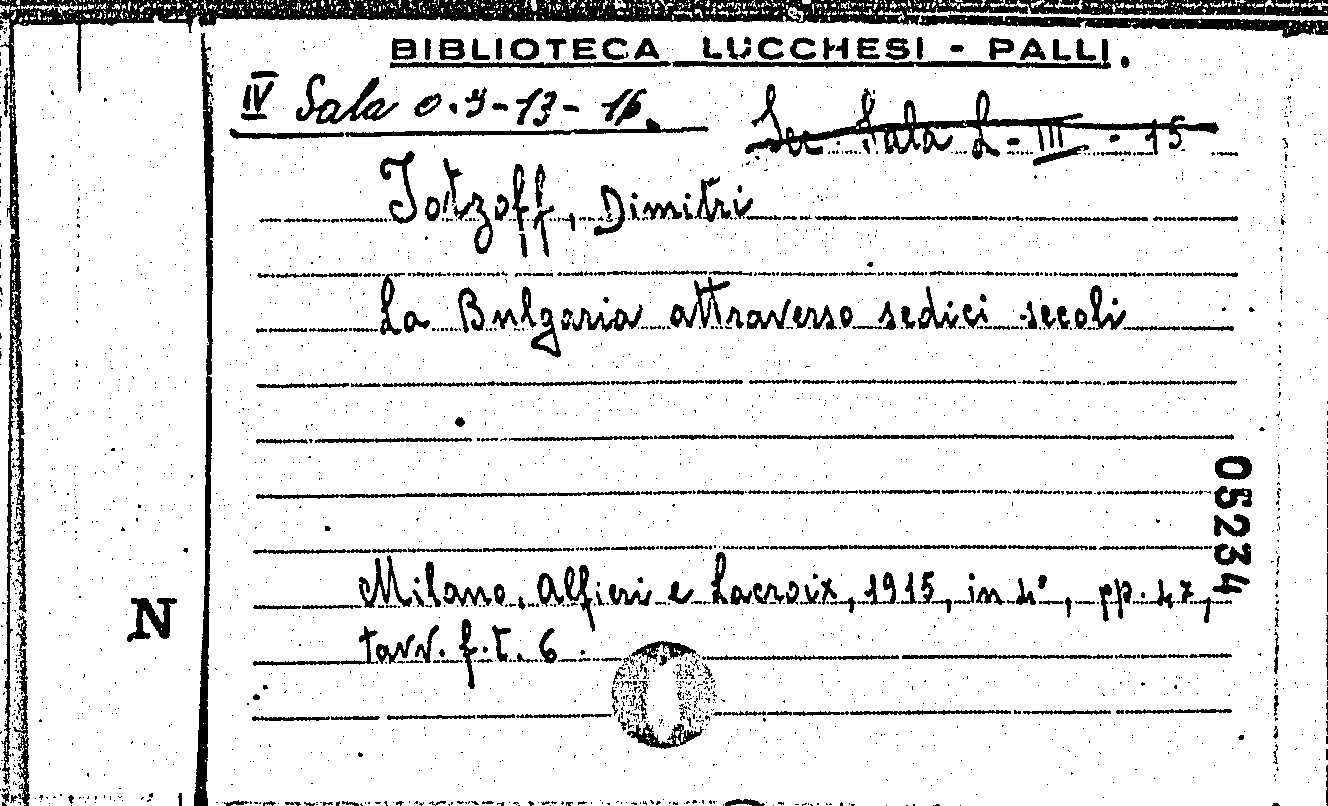 BIBLIOTECA LUCCHESI - PALLI.
IV Sala O.5-13-16.
Sec. Sala L - III - 15
Jotzoff, Dimitri
La Bulgaria attraverso sedici secoli
05234
Milano, Alfieri e Lacroix, 1915, in 4°, pp. 47,
N
tavv. f.t. 6.